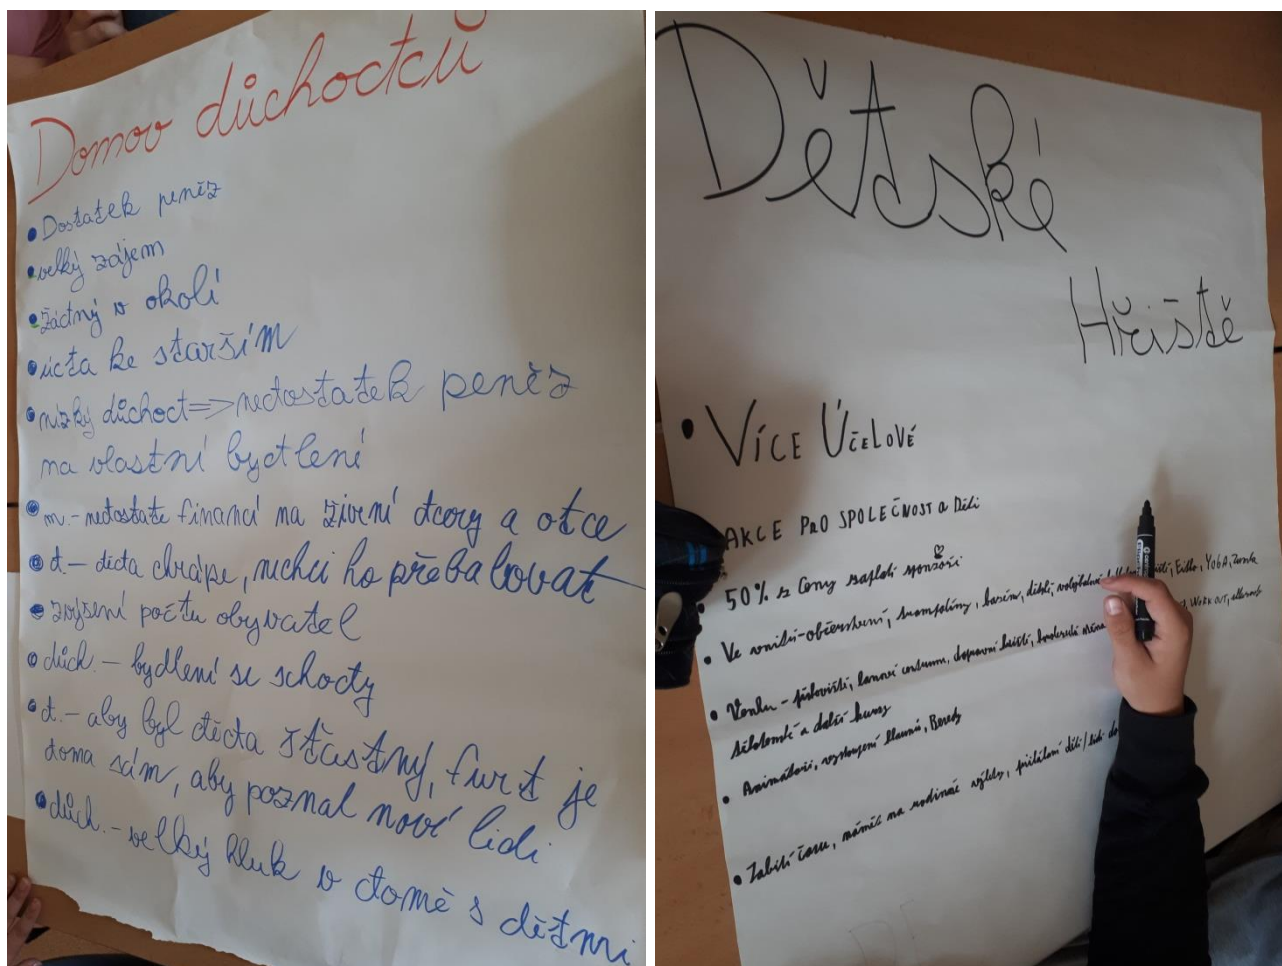 Domov důchodců
• Dostatek peněz
• velký zájem
• žádný v okolí
• úcta ke starším
• nízký důchod => nedostatek peněz
na vlastní bydlení
• m.- nedostate financí na živení dcery a otce
• d.- děda chrápe, nechci ho přebalovat
• zvýšení počtu obyvatel
• důch. - bydlení se schody
• d.- aby byl děda šťastný, furt je
doma sám, aby poznal nové lidi
• důch.- velký hluk v domě s dětmi
Dětské
Hřiště
• VÍCE ÚČELOVÉ
AKCE PRO SPOLEČNOST a Děti
• 50% z Ceny zaplatí sponzoři
• Ve vnitř-občerstvení, trampolíny, bazén, dětské, YOGA, Zumba
• Venku - pískoviště, lanové centrum, dopravní hřiště, WORKOUT
a další kurzy
• Animátoři, vystoupení klaunů, Besedy
• Zabití času, námět na rodinné výlety, přilákání dětí/lidí do